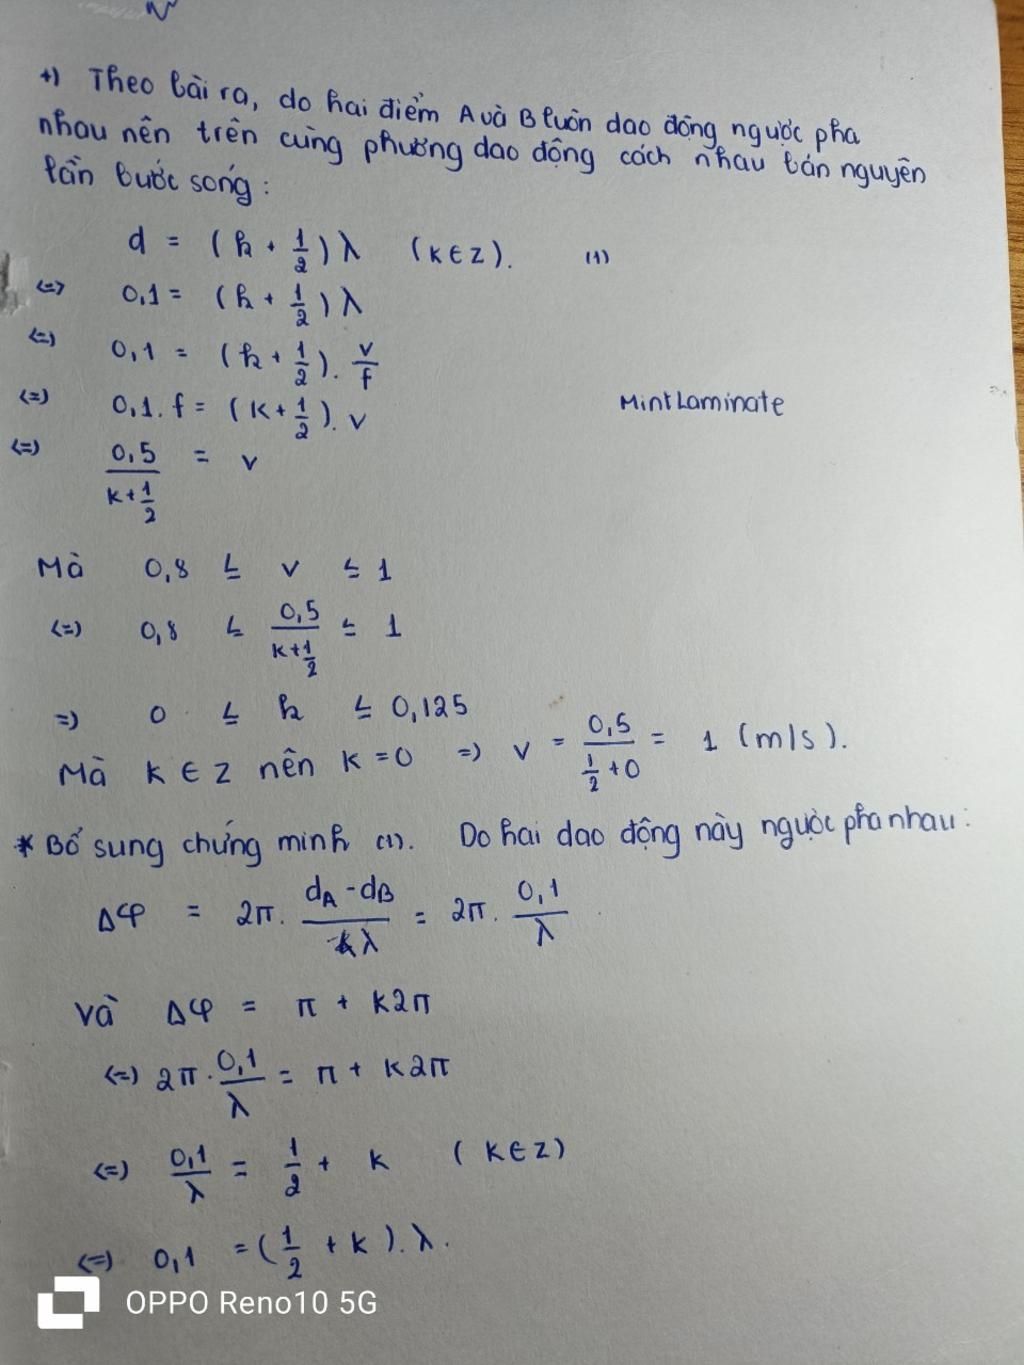 +) Theo bài ra, do hai điểm A và B luôn dao động ngược pha
nhau nên trên cùng phương dao động cách nhau bán nguyên
lần bước sóng:
d = (k + 1/2) λ (k ∈ Z). (1)
<=> 0,1 = (k + 1/2) λ
<=> 0,1 = (k + 1/2). v/f
<=> 0,1. f = (k + 1/2). v
MintLaminate
<=> 0,5/(k + 1/2) = v
Mà 0,8 ≤ v ≤ 1
<=> 0,8 ≤ 0,5/(k + 1/2) ≤ 1
=> 0 ≤ k ≤ 0,125
Mà k ∈ Z nên k = 0 => v = 0,5/(1/2 + 0) = 1 (m/s).
* Bổ sung chứng minh (1). Do hai dao động này ngược pha nhau:
Δφ = 2π. (dA - dB)/λ = 2π. 0,1/λ
và Δφ = π + k2π
<=> 2π. 0,1/λ = π + k2π
<=> 0,1/λ = 1/2 + k (k ∈ Z)
<=> 0,1 = (1/2 + k). λ.
OPPO Reno10 5G